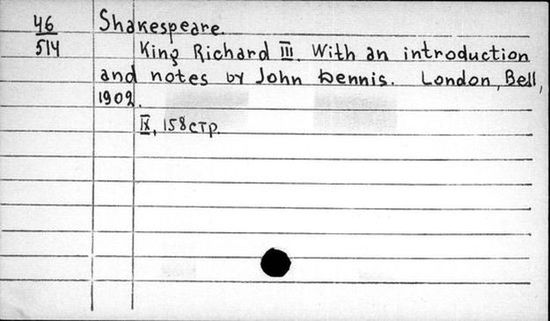 46
514
Shakespeare.
King Richard III. With an introduction
and notes by John Dennis. London, Bell,
1902.
IX, 158 стр.